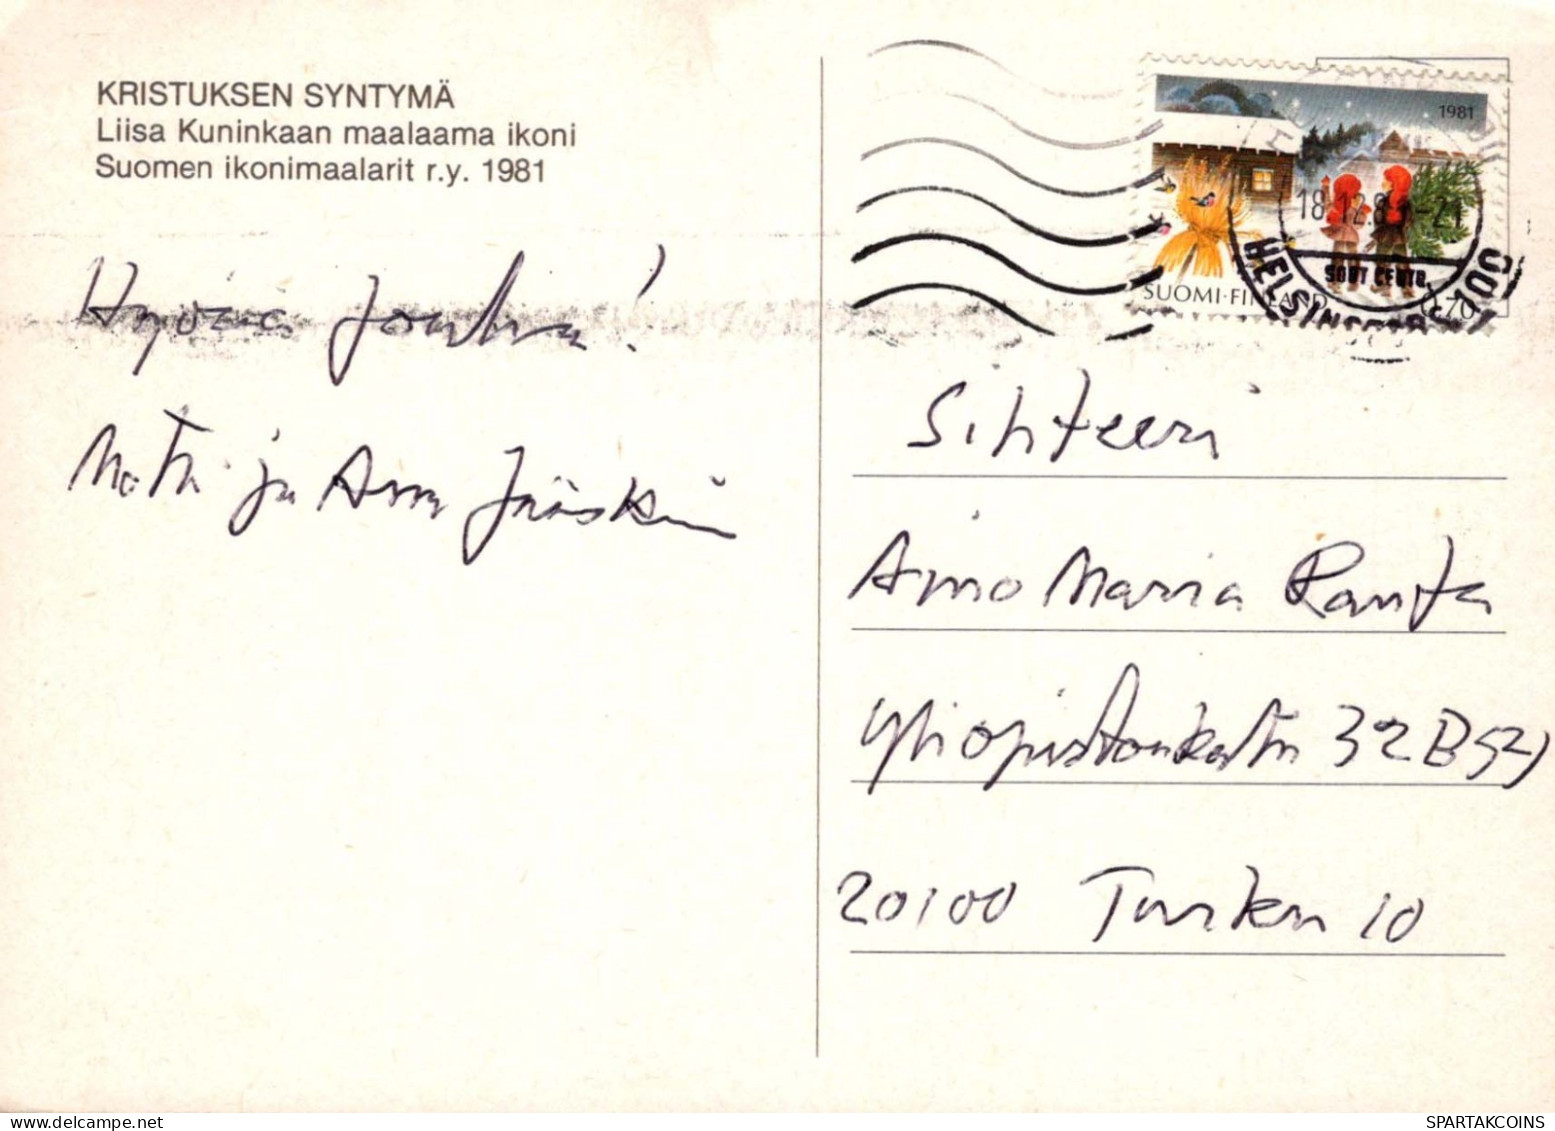 KRISTUKSEN SYNTYMÄ
Liisa Kuninkaan maalaama ikoni
Suomen ikonimaalarit r.y. 1981
Hyvää Joulua!
Matti ja Anna Jääskinen
1981
SUOMI·FINLAND 0,70
18.12.81-21
SORT CENTR.
HELSINGFORS 100
Sihteeri
Aino Maria Ranta
Yliopistonkatu 32 B 52
20100 Turku 10
SPARTAKCOINS